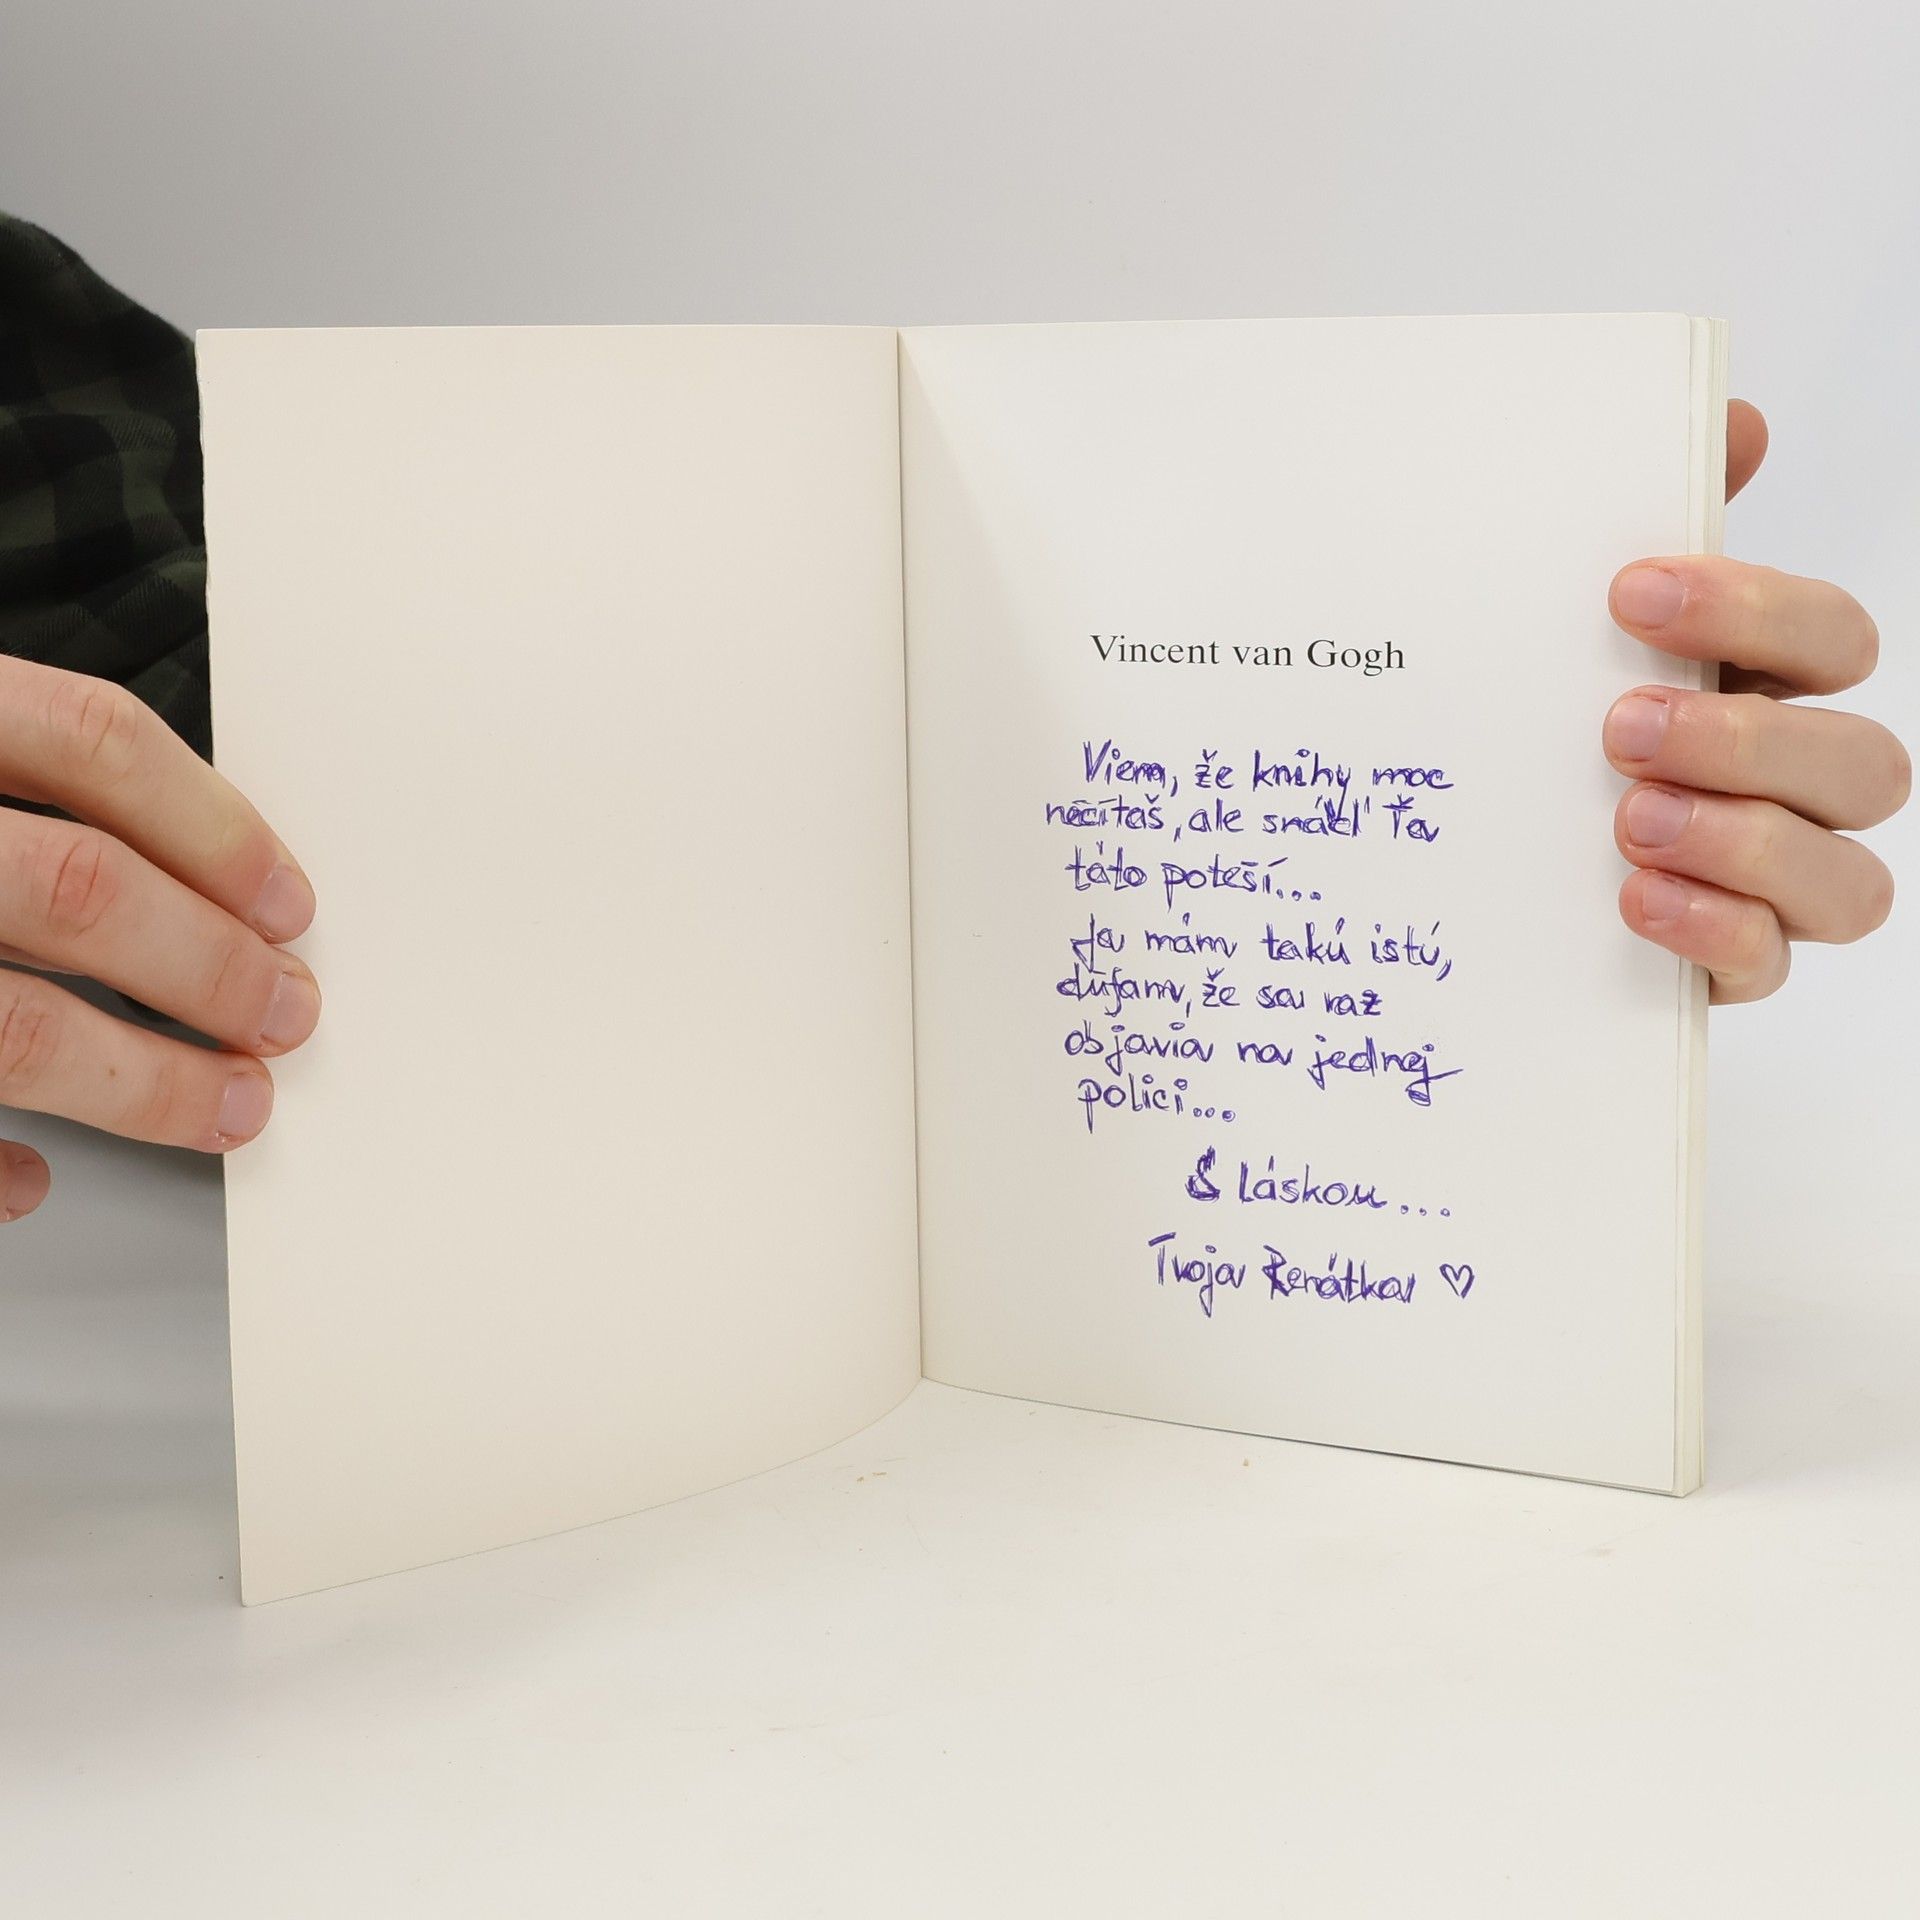 Vincent van Gogh
Viem, že knihy moc
nečítaš, ale snáď Ťa
táto poteší...
Ja mám takú istú,
dúfam, že sa raz
objavia na jednej
polici...
S láskou...
Tvoja Renátka ♡